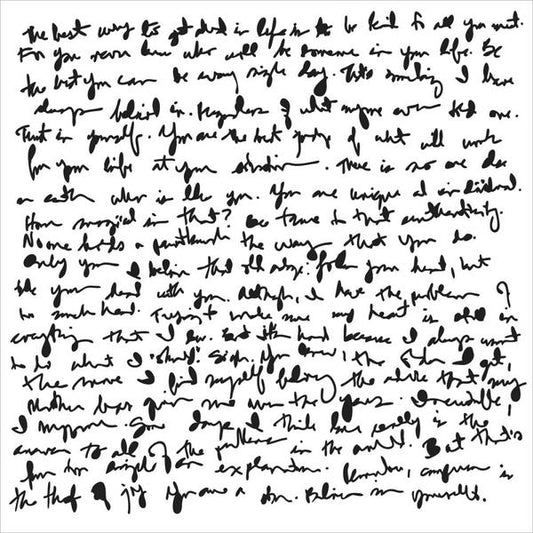 The best way to get ahead in life is to be kind to all you meet.
For you never know who will be someone in your life. Be
the best you can be every single day. That's something I have
always believed in. Regardless of what anyone ever told me.
Trust in yourself. You are the best judge of what will work
for your life at your situation. There is no one else
on earth who is like you. You are unique and individual.
How magical is that? Be true to that authenticity.
No one holds a paintbrush the way that you do.
Only you I believe that old adage: follow your heart, but
take your head with you. Although, I have the problem of
too much head. Trying to make sure my heart is still in
everything that I do. But it's hard because I always want
to do what I "should". Sigh. You know, the older I get,
the more I find myself the advice that my
mother has given me over the years. Inevitable,
I suppose. Some days, I think love really is the
answer to all of the problems in the world. But that's
for an explanation. Remember, comparison is
the thief of joy. You are a star. Believe in yourself.